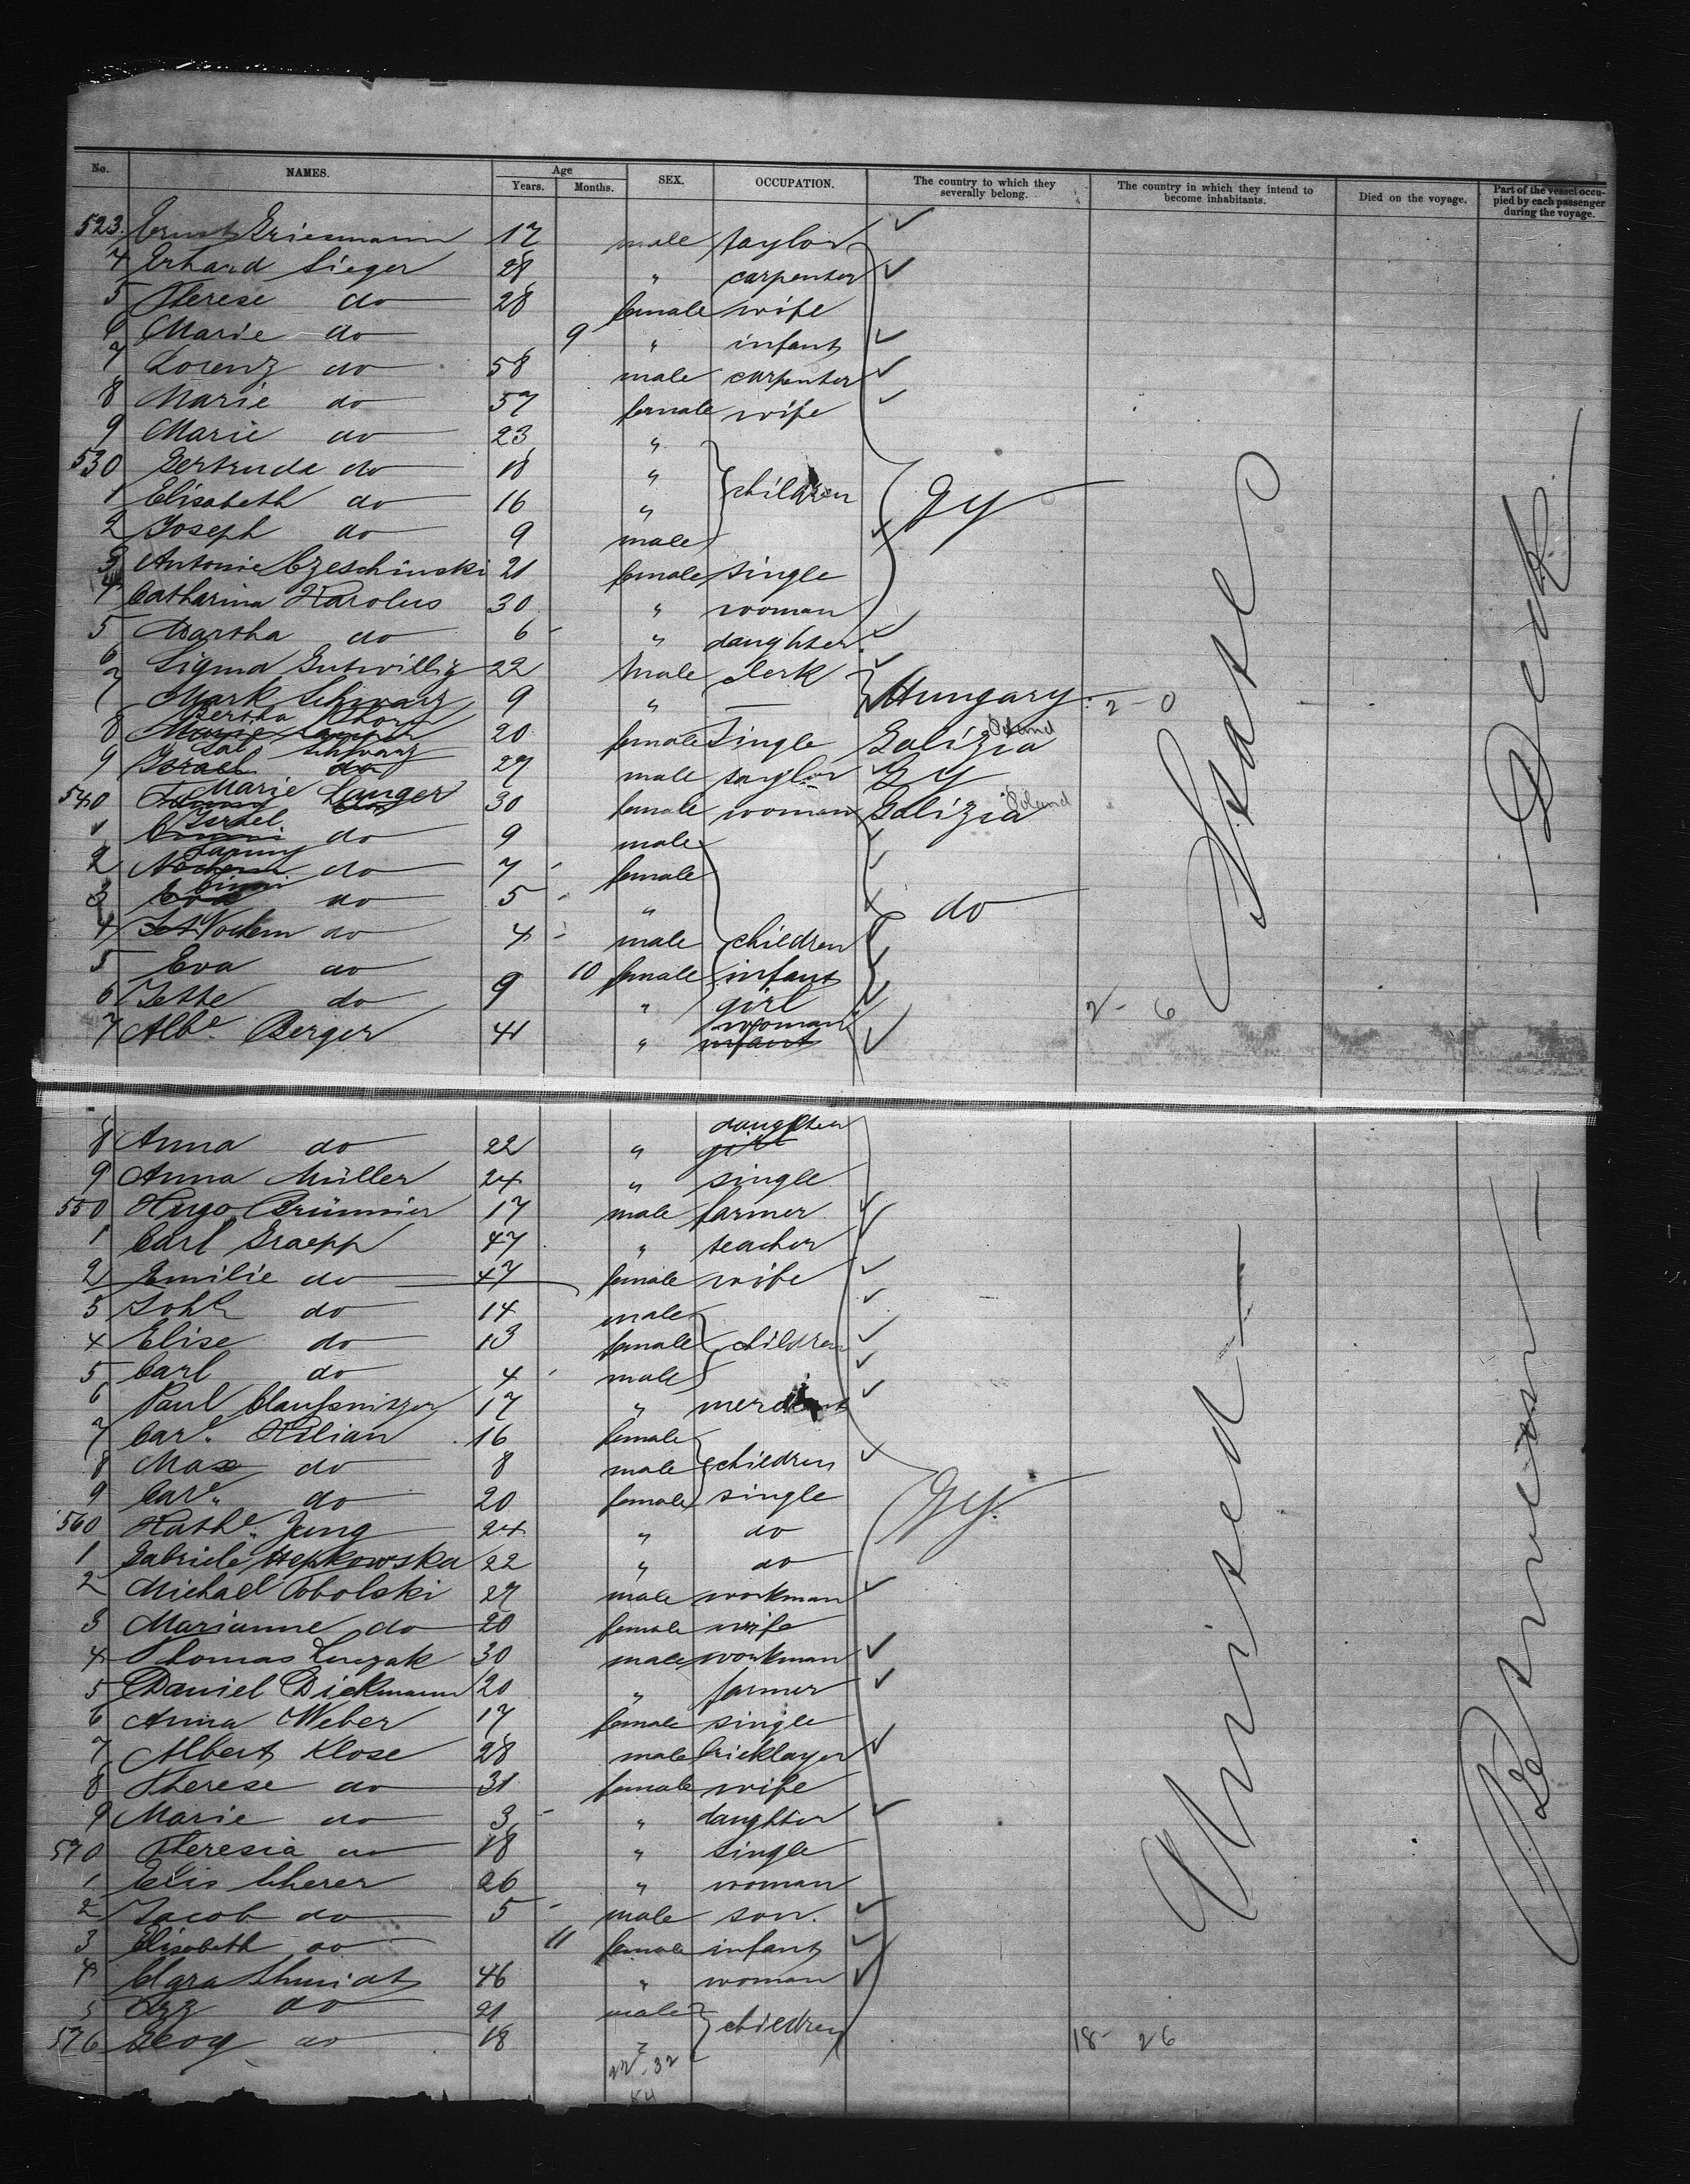 No. NAMES. Age Years. Months. SEX. OCCUPATION. The country to which they severally belong. The country in which they intend to become inhabitants. Died on the voyage. Part of the vessel occupied by each passenger during the voyage.
523. Ernst Griesmann 17 male taylor
4 Erhard Sieger 28 " carpenter
5 Therese do 28 female wife
6 Marie do 9 " infant
7 Lorenz do 58 male carpenter
8 Marie do 57 female wife
9 Marie do 23 "
530 Gertrude do 18 "
1 Elisabeth do 16 " children Gy
2 Joseph do 9 male
3 Antonie Czeschinski 21 female single
4 Catharina Karolus 30 " woman
5 Martha do 6 " daughter
6 Sigmd Gutwillig 22 male clerk
7 Mark Schwarz 9 " — Hungary 2-0
8 Bertha 20 female single Galizia Poland
9 Sal Schwarz Israel do 27 male taylor Gy
540 Marie Langer 30 female woman Galizia Poland
1 Israel do 9 male
2 Fanny do 7 female
3 do 5 " do
4 Nochem do 4 male children
5 Eva do 10 female infant
6 Jette do 9 " girl 2- 6
7 Albe Berger 41 " woman infant
8 Anna do 22 " daughter girl
9 Anna Müller 24 " single
550 Hugo 17 male farmer
1 Carl Graepp 47 " teacher
2 Emilie do 47 female wife
3 Joh do 14 male
4 Elise do 13 female children
5 Carl do 4 male
6 Paul Claußnitzer 17 "
7 Care Kilian 16 female
8 Max do 8 male children
9 Care do 20 female single
560 Kathe Jung 24 " do Gy.
1 Gabriele Hepkowska 22 " do
2 Michael Obolski 27 male workman
3 Marianne do 20 female wife
4 Thomas 30 male workman
5 Daniel Dickmann 20 " farmer
6 Anna Weber 17 female single
7 Albert Klose 28 male bricklayer
8 Therese do 31 female wife
9 Marie do 3 " daughter
570 Theresia do 18 " single
1 Elis Scherer 26 " woman
2 Jacob do 5 male son.
3 Elisabeth do 11 female infant
4 Clara Schmidt 46 " woman
5 do 21 male
576 do 18 children 18- 26
22. 32
United States
Between Deck